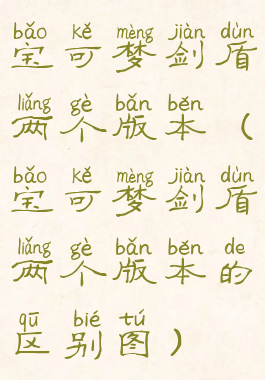 bǎo kě mèng jiàn dùn
宝可梦剑盾
liǎng gè bǎn běn
两个版本（
bǎo kě mèng jiàn dùn
宝可梦剑盾
liǎng gè bǎn běn de
两个版本的
qū bié tú
区别图）